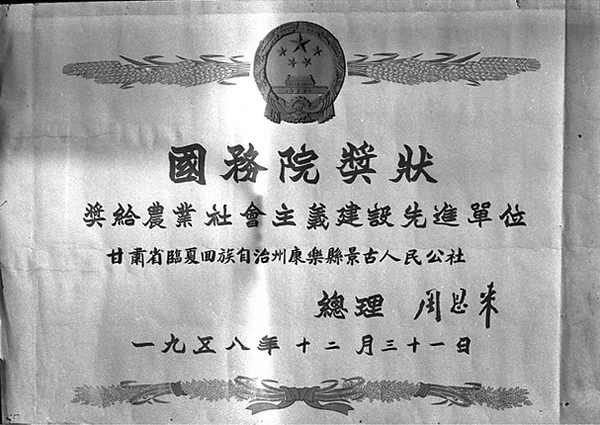 國務院獎狀
獎給農業社會主義建設先進單位
甘肅省臨夏回族自治州康樂縣景古人民公社
總理 周恩来
一九五八年十二月三十一日